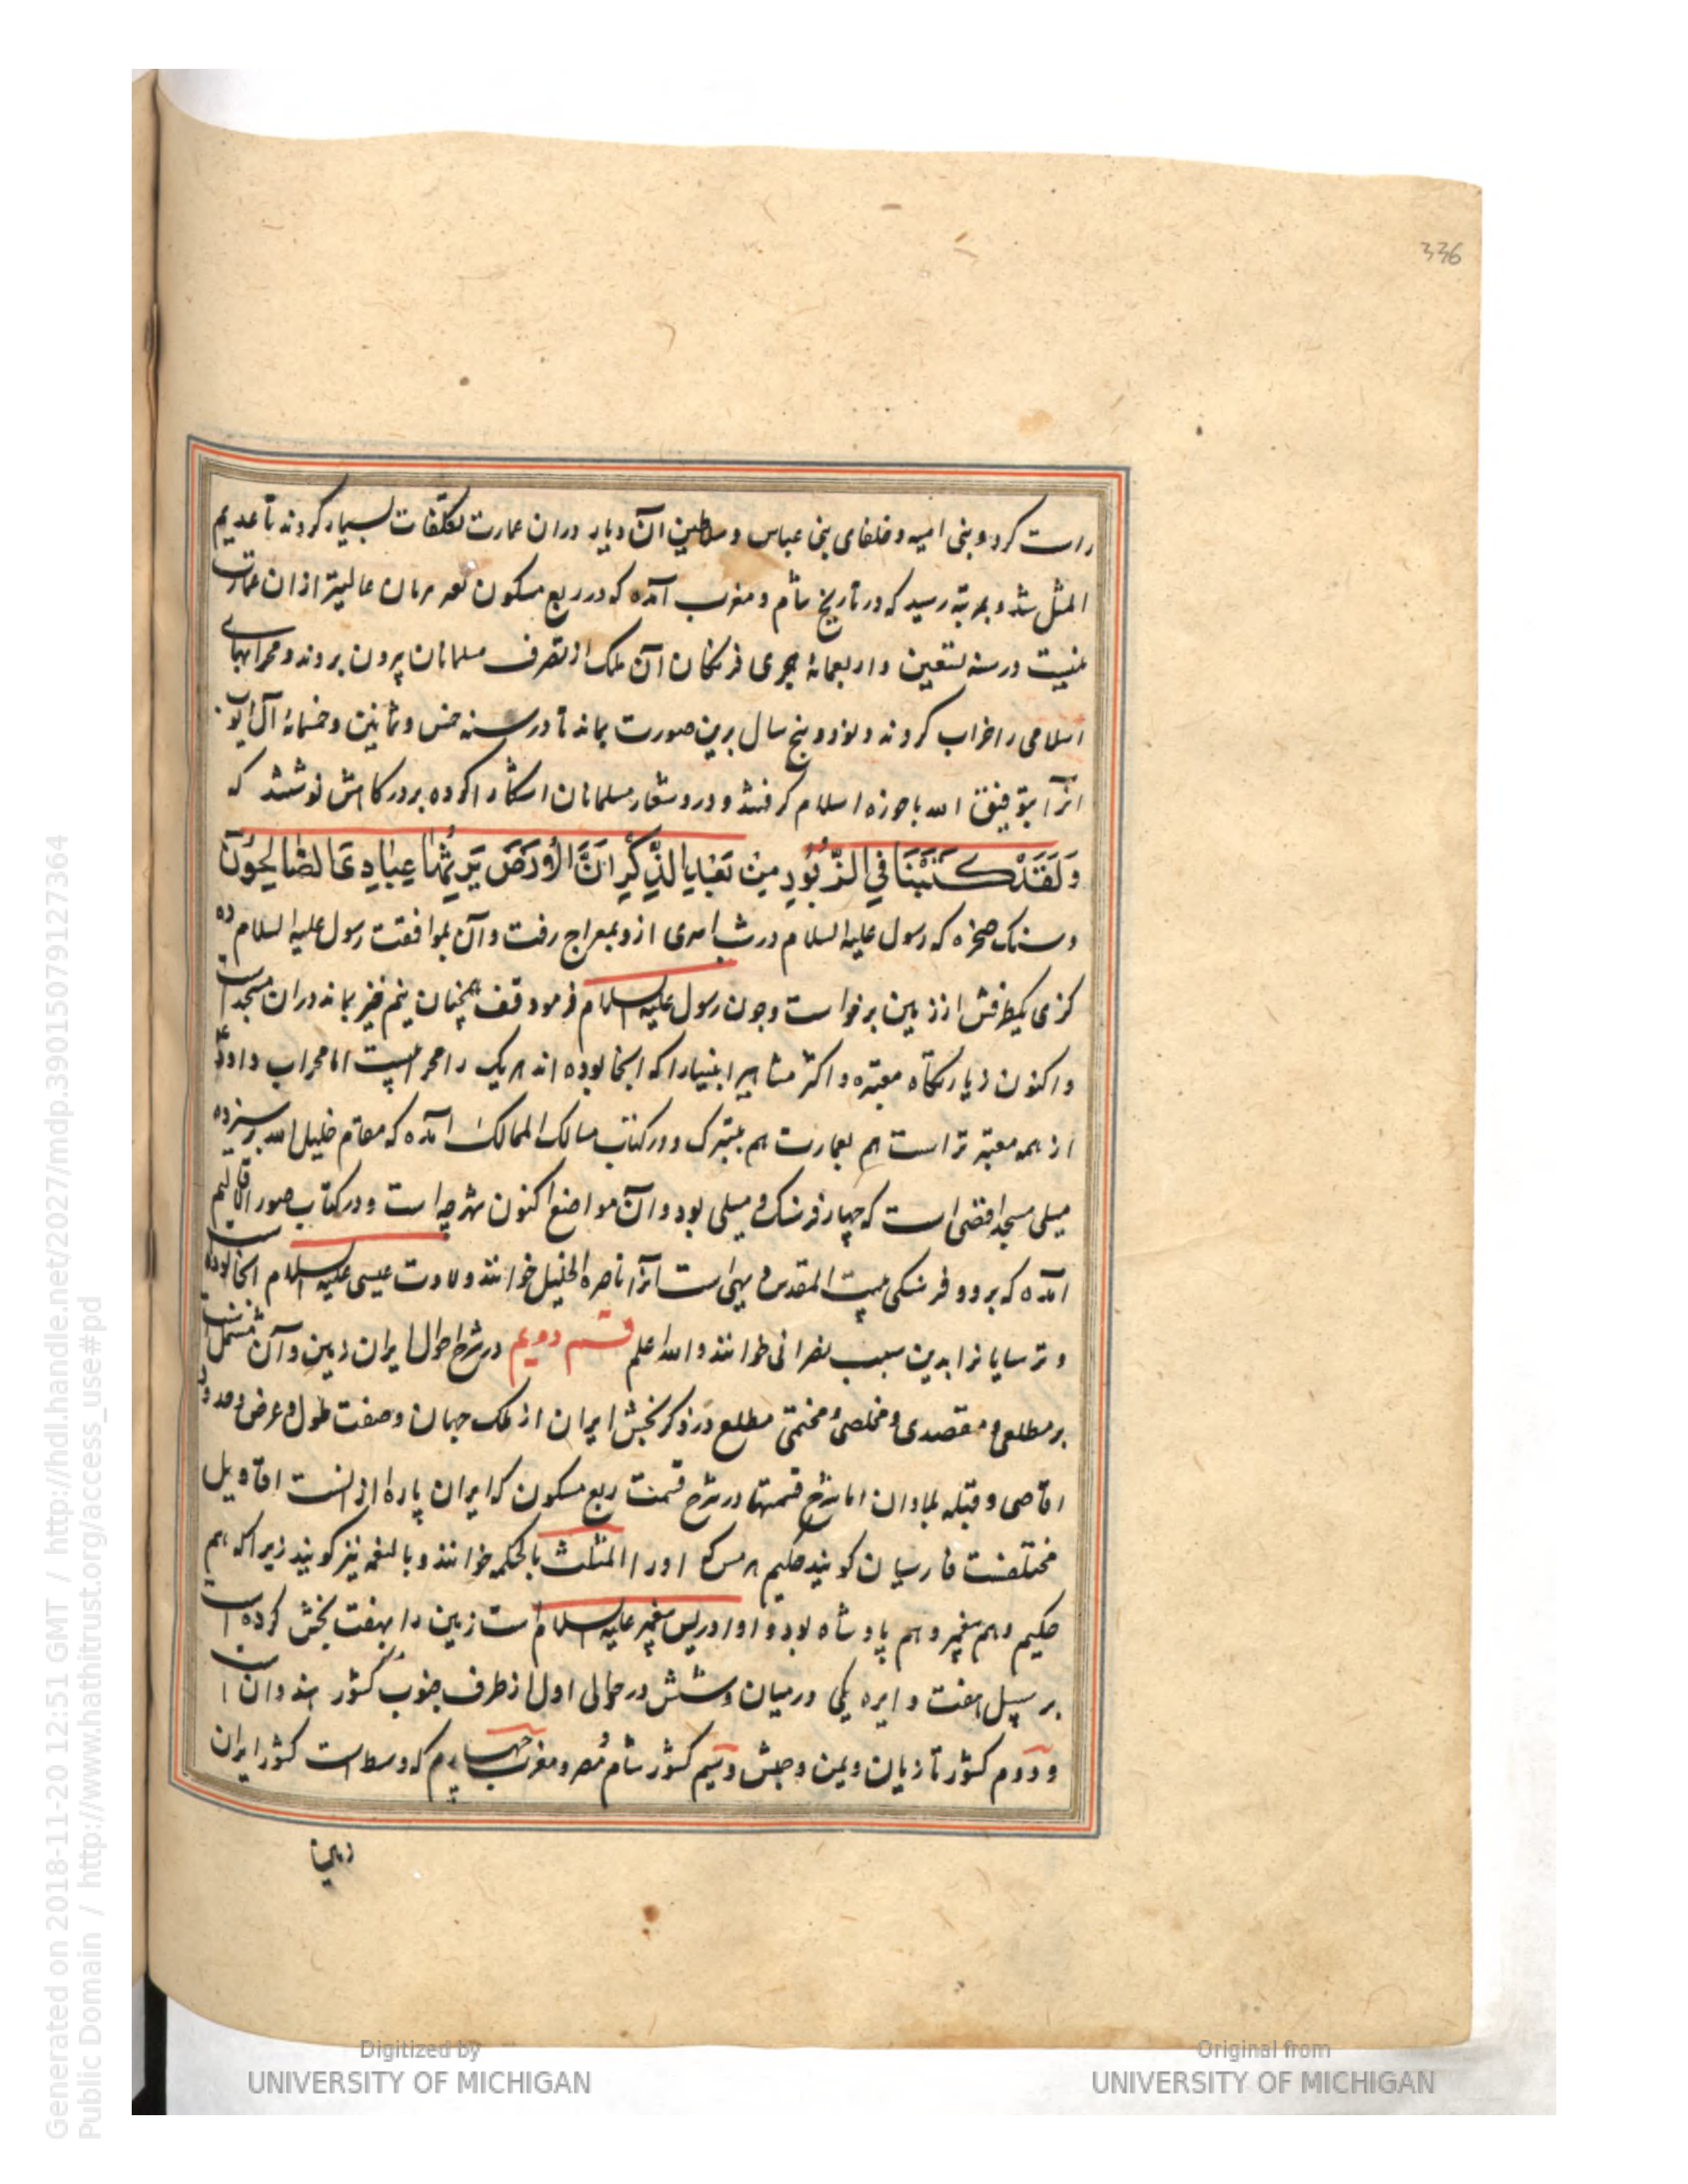 336
راست کرد و بنی امیه و خلفای بنی عباس و سلاطین آن دیار دران عمارت تکلفات بسیار کردند تا عدیم
المثل شد و بمرتبه رسید که در تاریخ شام و مغرب آمده که در ربع مسکون عالیتر ازان عمارت
نیست در سنه تسعین و اربعمائه هجری فرنکان آن ملک از تصرف مسلمانان بیرون بردند و محرابهای
اسلامی را خراب کردند و نود و پنج سال برین صورت بماند تا در سنه خمس و ثمانین و خمسمائه آل ایوب
انرا بتوفیق الله باحوزه اسلام کرفتند و درو شعار مسلمانان اشکارا کرده بر درکاهش نوشتند که
وَلَقَدْ كَتَبْنَا فِي الزَّبُورِ مِنْ بَعْدِ الذِّكْرِ اَنَّ الْأَرْضَ يَرِثُهَا عِبَادِيَ الصَّالِحُونَ
و سنک صخره که رسول علیه السلام در شب اسری ازو بمعراج رفت و آن بموافقت رسول علیه السلام ده
کزی یکطرفش از زمین برخواست و چون رسول علیه السلام فرمود قف همچنان نیم خیز بماند دران مسجد است
و اکنون زیارتکاه معتبره و اکثر مشاهیر انبیا را که انجا بوده اند هر یک را محرابیست اما محراب داود
از همه معتبرتر است هم بعمارت هم بتبرک و در کتاب مسالک الممالک آمده که مقام خلیل الله بر سیزده
میلی مسجد اقصی است که چهار فرسنک و میلی بود و آن مواضع اکنون شهرچه است و در کتاب صور اقالیم
آمده که بر دو فرسنکی بیت المقدس دیهی است آنرا ناصرة الخلیل خوانند ولادت عیسی علیه السلام انجا بوده است
و ترسایانرا بدین سبب نصرانی خوانند و الله اعلم قسم دویم در شرح احوال ایران زمین و آن مشتمل است
بر مطلعی و مقصدی و مخلصی و مختمی مطلع در ذکر بخش ایران از ملک جهان و صفت طول و عرض و حدود
اقاصی و قبله بلادان اما شرح قسمتها در شرح قسمت ربع مسکون که ایران پاره از انست اقاویل
مختلفست فارسیان کویند حکیم هرمس که او را المثلث بالحکمه خوانند و بالنعمه نیز کویند زیرا که هم
حکیم و هم پیغمبر و هم پادشاه بود و او ادریس پیغمبر علیه السلام است زمین را بهفت بخش کرده است
بر سبیل هفت دایره یکی در میان و شش در حوالی اول از طرف جنوب کشور هندوان است
و دوم کشور تازیان و یمن و حبش و سیم کشور شام و مصر و مغرب چهارم که وسط است کشور ایران
زمین
Digitized by
UNIVERSITY OF MICHIGAN
Original from
UNIVERSITY OF MICHIGAN
Generated on 2018-11-20 12:51 GMT / http://hdl.handle.net/2027/mdp.39015079127364
Public Domain / http://www.hathitrust.org/access_use#pd